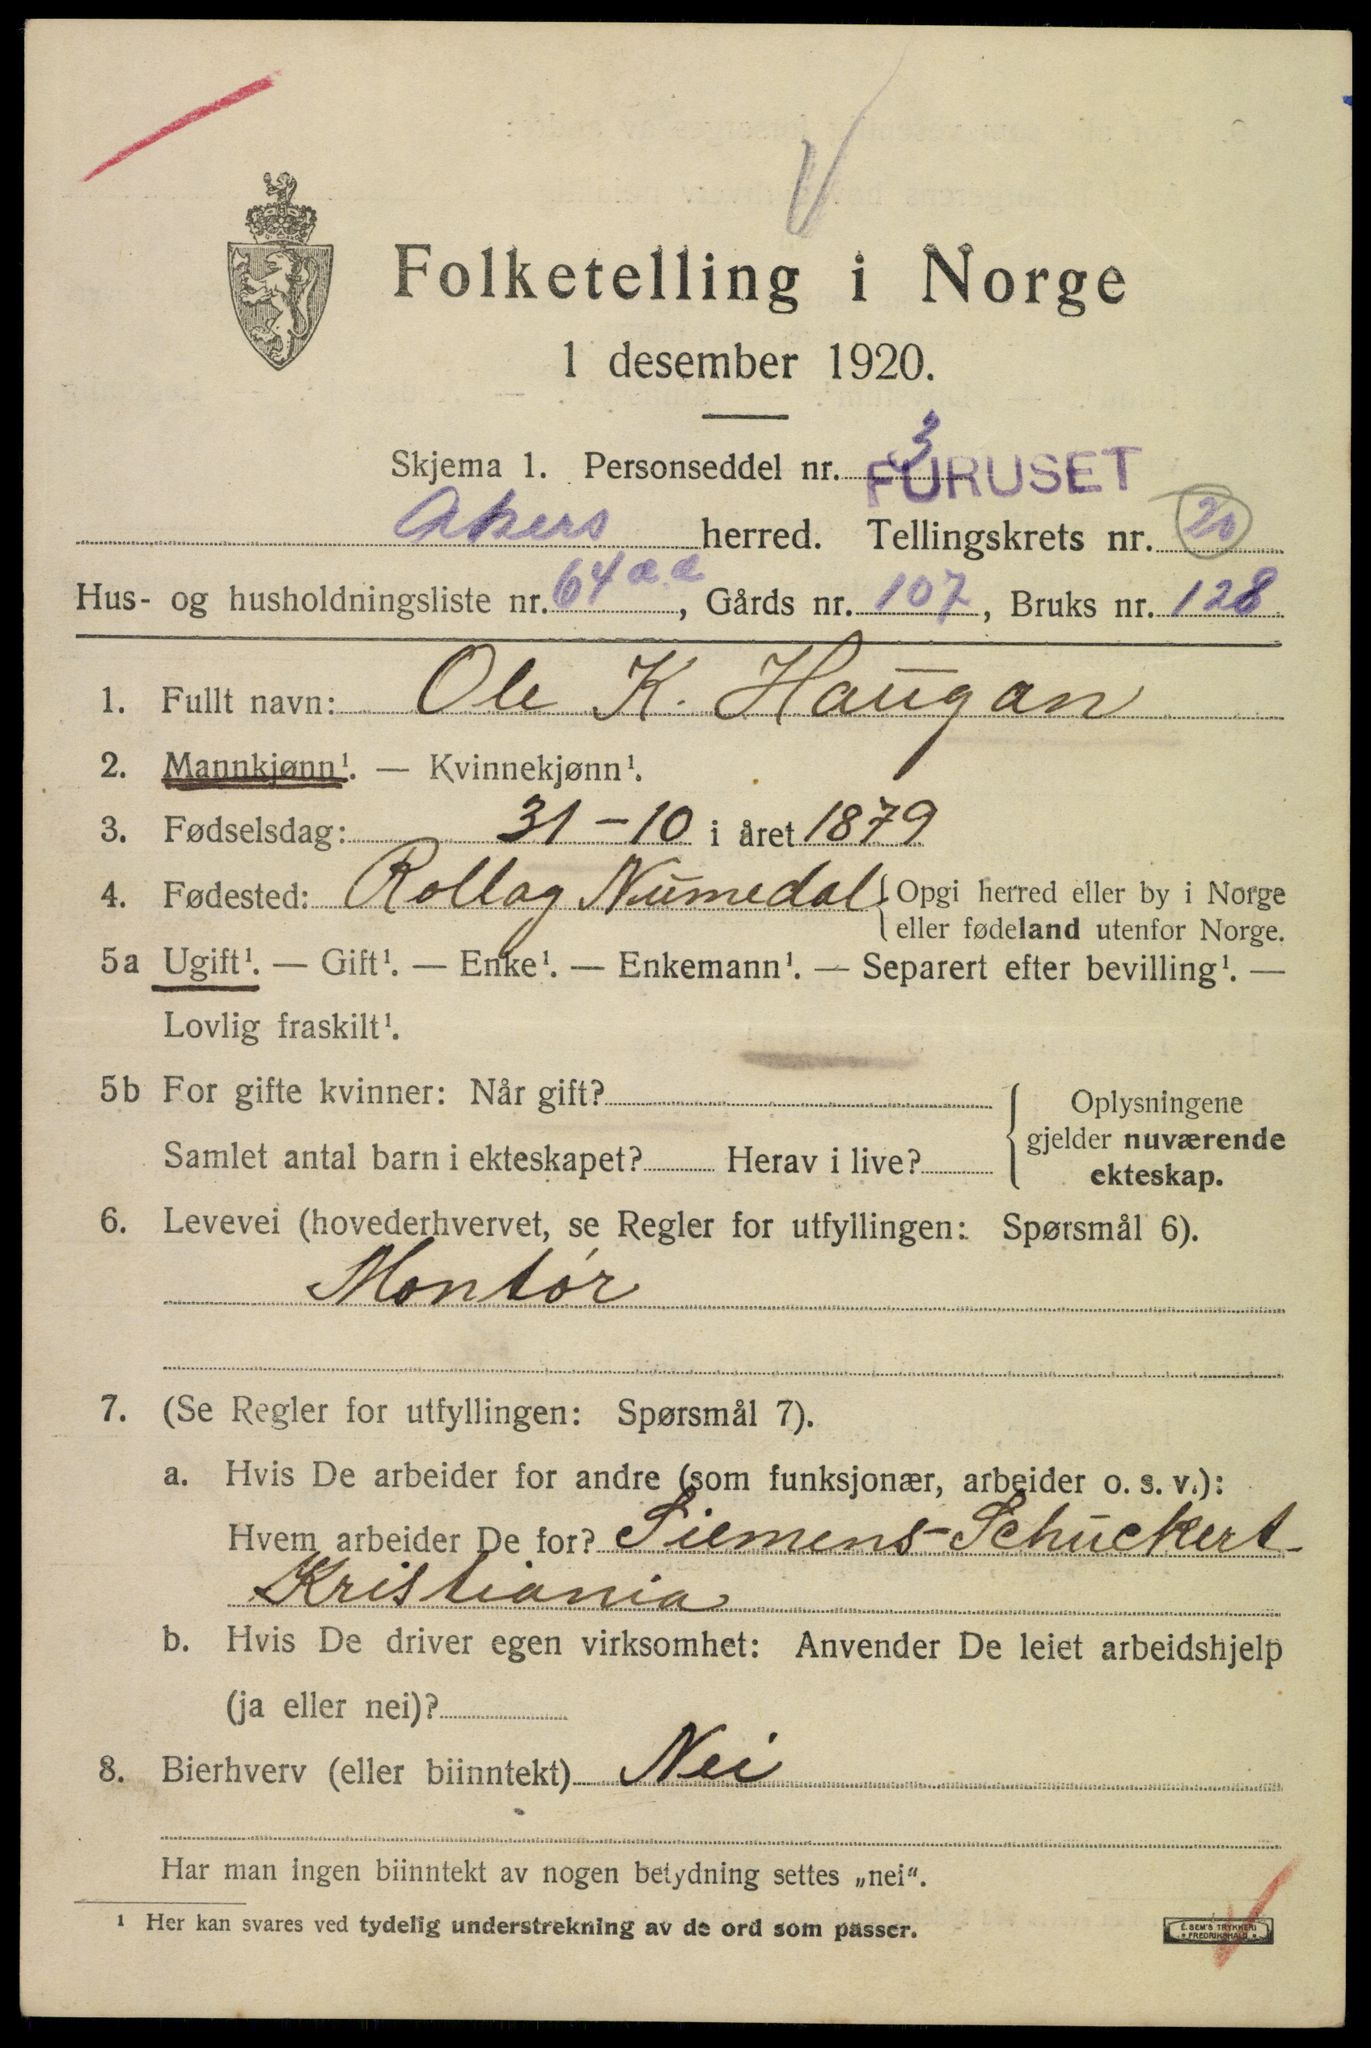 Folketelling i Norge
1 desember 1920.
Skjema 1. Personseddel nr. 3
FURUSET
Akers herred. Tellingskrets nr. 20
Hus- og husholdningsliste nr. 64 a a, Gårds nr. 107, Bruks nr. 128
1. Fullt navn: Ole K. Haugan
2. Mannkjønn¹. — Kvinnekjønn¹.
3. Fødselsdag: 31-10 i året 1879
4. Fødested: Rollag Numedal { Opgi herred eller by i Norge
eller fødeland utenfor Norge.
5a Ugift¹. — Gift¹. — Enke¹. — Enkemann¹. — Separert efter bevilling¹. —
Lovlig fraskilt¹.
5b For gifte kvinner: Når gift?
Samlet antal barn i ekteskapet? Herav i live?
{ Oplysningene
gjelder nuværende
ekteskap.
6. Levevei (hovederhvervet, se Regler for utfyllingen: Spørsmål 6).
Montør
7. (Se Regler for utfyllingen: Spørsmål 7).
a. Hvis De arbeider for andre (som funksjonær, arbeider o. s. v.):
Hvem arbeider De for? Siemens-Schuckert
Kristiania
b. Hvis De driver egen virksomhet: Anvender De leiet arbeidshjelp
(ja eller nei)?
8. Bierhverv (eller biinntekt) Nei
Har man ingen biinntekt av nogen betydning settes „nei“.
¹ Her kan svares ved tydelig understrekning av de ord som passer.
E. SEM'S TRYKKERI
FREDRIKSHALD